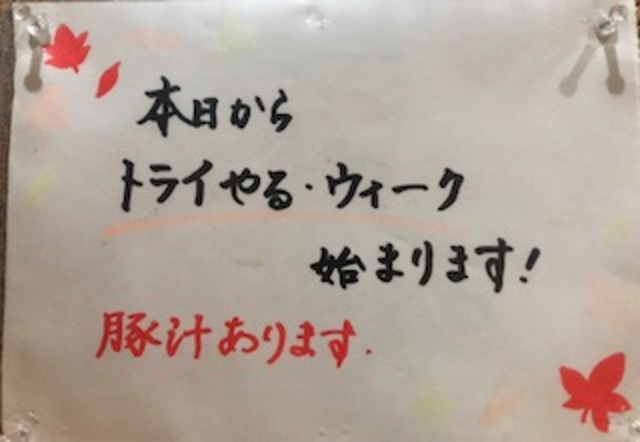 本日から
トライやる・ウィーク
始まります!
豚汁あります.